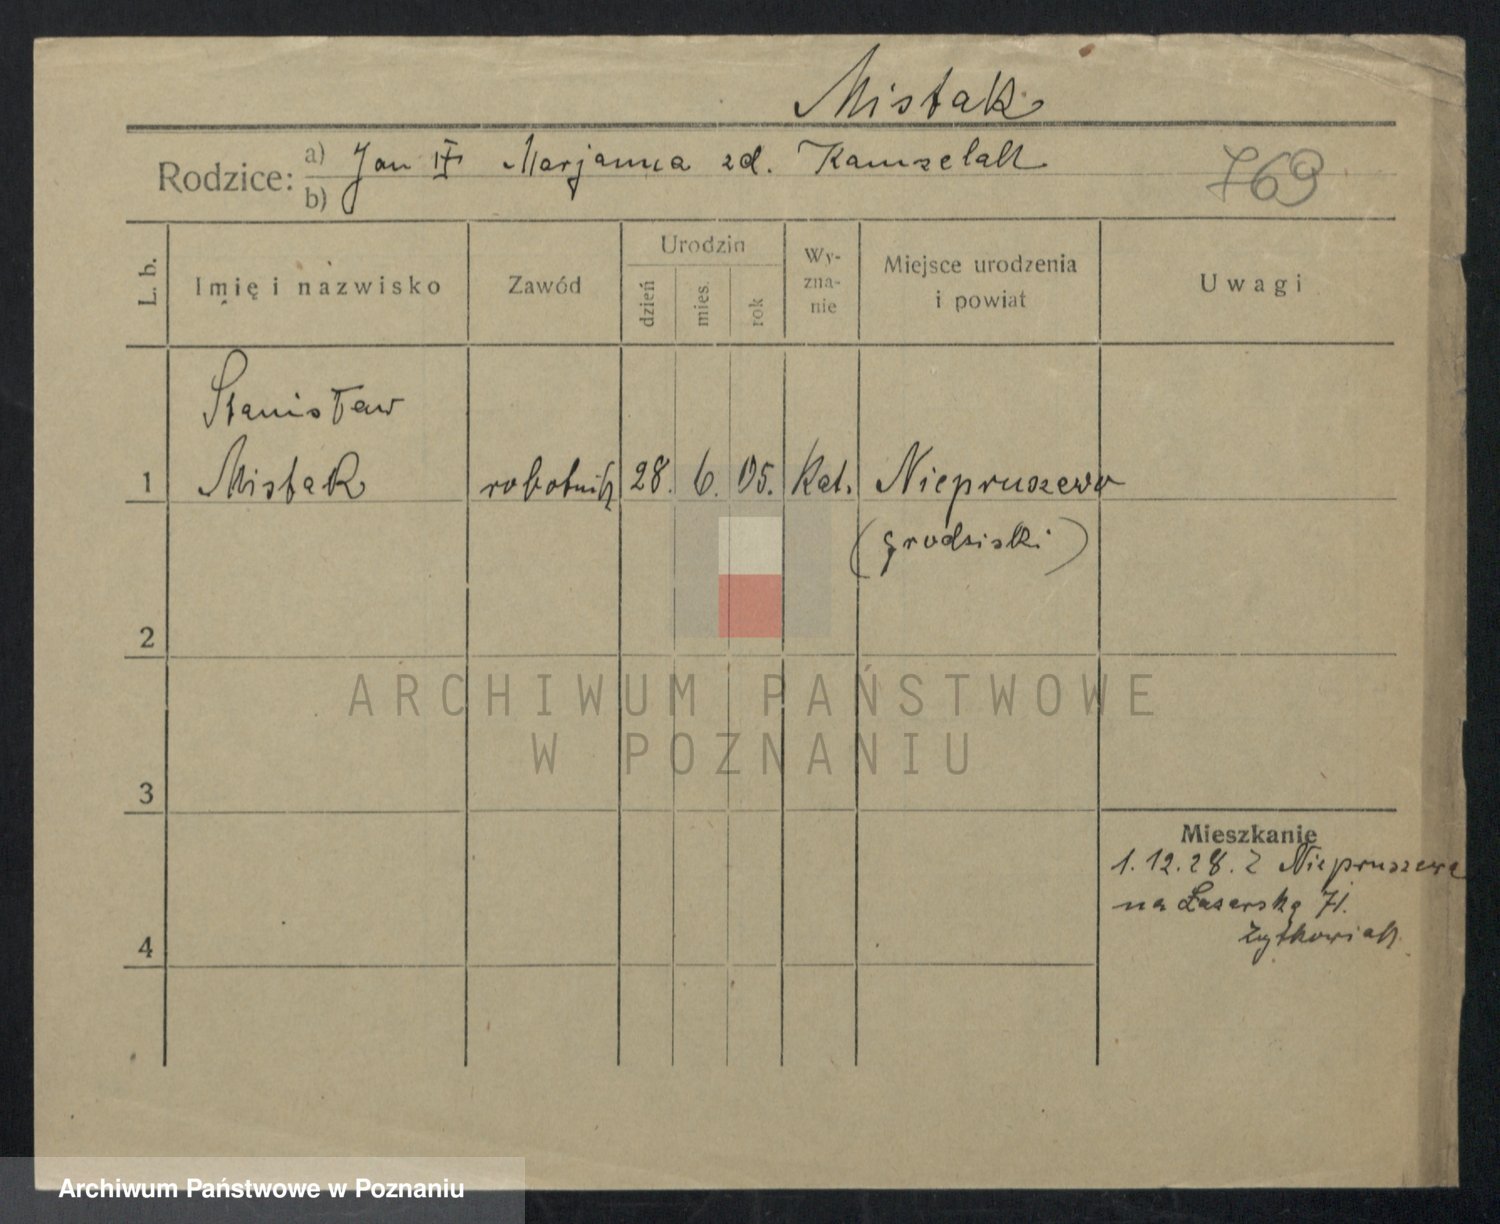 Mistak
Rodzice: a) Jan Marjanna zd. Kamzelak
b)
769
L. b. Imię i nazwisko Zawód Urodzin dzień mies. rok Wy-zna-nie Miejsce urodzenia i powiat Uwagi
Stanisław
1 Mistak robotnik 28. 6. 05. Kat. Niepruszewo
(grodziski)
2
ARCHIWUM PAŃSTWOWE
W POZNANIU
3
Mieszkanie
1.12.28. Z Niepruszewa
na Łazarską 71.
4 Żytkowiak
Archiwum Państwowe w Poznaniu